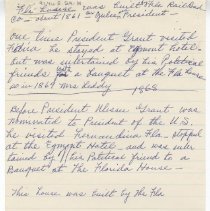 Fla House was built by the Railroad
Co - about 1861 - Yulee President -
One time President Grant visited
Fla. he stayed at Egmont hotel.
but was intertained by his Political
friends to a banquet at the Fla House
so in 1869 Mrs Leddy 1868
Before President Ulesses Grant was
nominated to President of the U.S.
he visited Fernandina Fla - stopped
at the Egmont Hotel - and was inter
tained by his Political friend to a
Banquet at The Florida House -
This house was built by the Fla